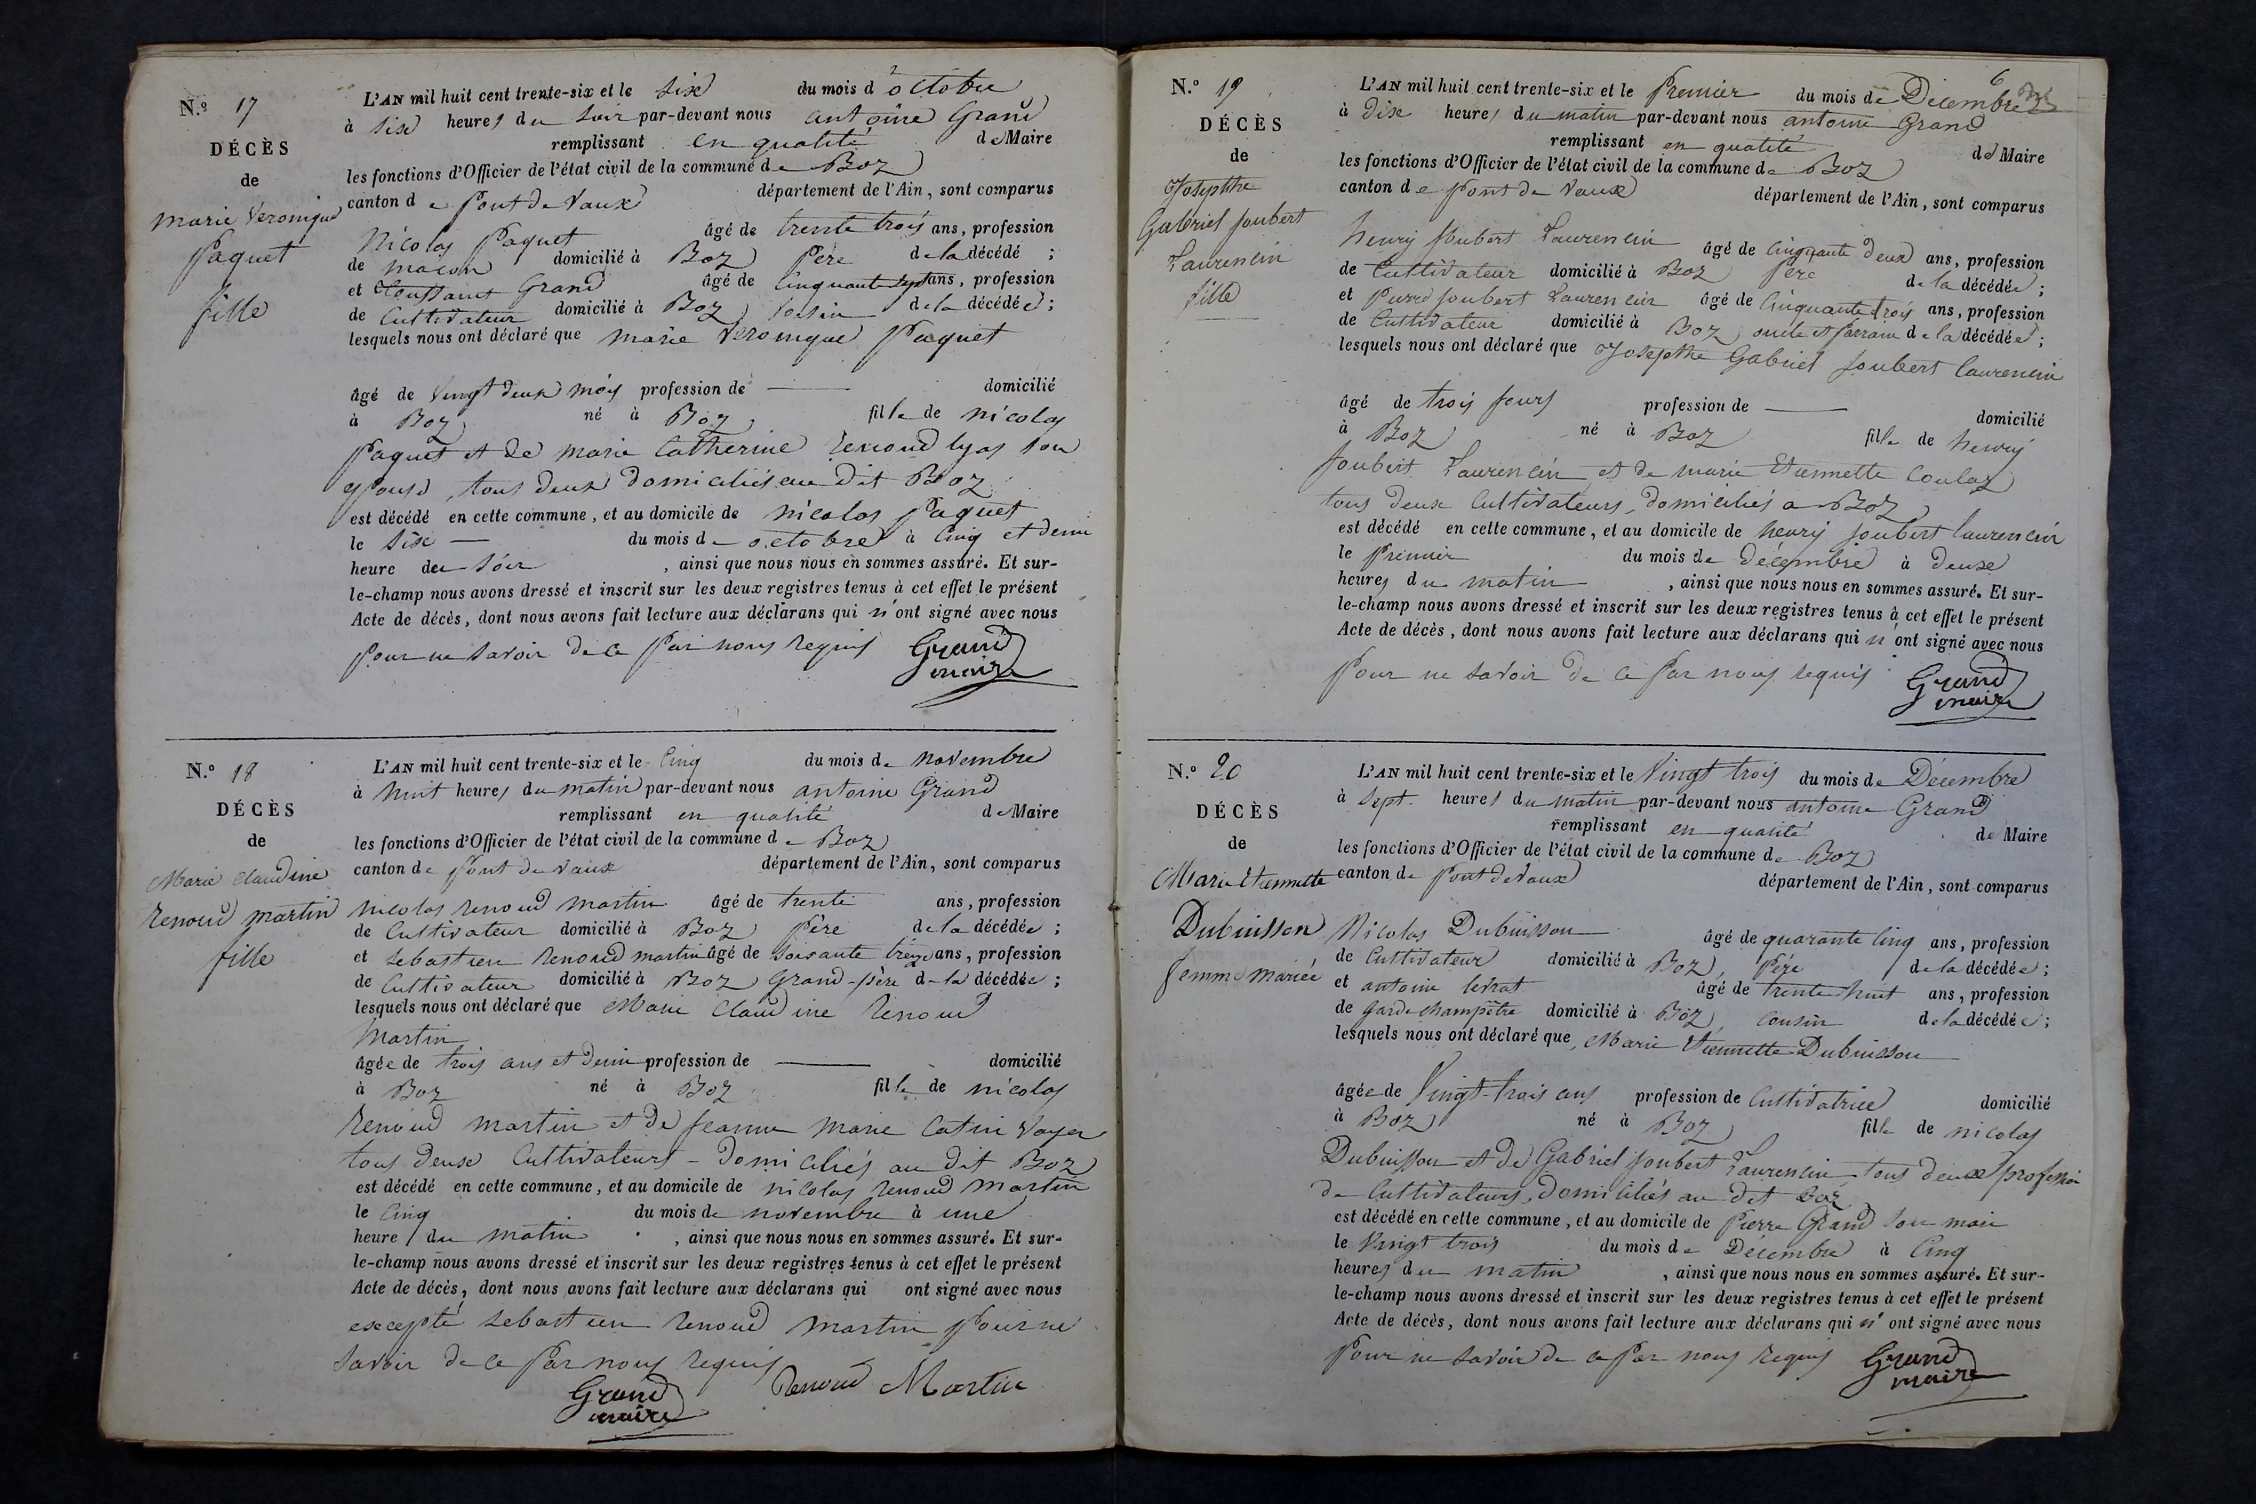 N.º 17
DÉCÈS
de
marie Veronique
Paquet
fille
L'AN mil huit cent trente-six et le six du mois d'octobre
à six heures du soir par-devant nous antoine Grand
remplissant en qualité de Maire
les fonctions d'Officier de l'état civil de la commune de Boz
canton de Pont de Vaux département de l'Ain, sont comparus
Nicolas Paquet âgé de trente trois ans, profession
de macon domicilié à Boz Père de la décédé ;
et Toussaint Grand âgé de Cinquante sept ans, profession
de Cultivateur domicilié à Boz voisin de la décédée ;
lesquels nous ont déclaré que marie Veronique Paquet
âgé de Vingt deux mois profession de domicilié
à Boz né à Boz fille de nicolas
Paquet et de marie Catherine renoud lyas son
epouse, tous deux domiciliés au dit Boz
est décédé en cette commune, et au domicile de nicolas Paquet
le six du mois de octobre à Cinq et demi
heure du soir , ainsi que nous nous en sommes assuré. Et sur-
le-champ nous avons dressé et inscrit sur les deux registres tenus à cet effet le présent
Acte de décès, dont nous avons fait lecture aux déclarans qui n'ont signé avec nous
pour ne savoir de ce par nous requis Grand
maire
N.º 18
DÉCÈS
de
Marie Claudine
renoud martin
fille
L'AN mil huit cent trente-six et le Cinq du mois de novembre
à huit heures du matin par-devant nous antoine Grand
remplissant en qualité de Maire
les fonctions d'Officier de l'état civil de la commune de Boz
canton de Pont de Vaux département de l'Ain, sont comparus
nicolas renoud martin âgé de trente ans, profession
de Cultivateur domicilié à Boz Père de la décédée ;
et sebastien renoud martin âgé de soixante treize ans, profession
de Cultivateur domicilié à Boz Grand-père de la décédée ;
lesquels nous ont déclaré que Marie Claudine renoud
Martin
âgée de trois ans et demi profession de domicilié
à Boz né à Boz fille de nicolas
renoud martin et de jeanne marie Catin Voyer
tous deux Cultivateurs - domiciliés au dit Boz
est décédé en cette commune, et au domicile de nicolas renoud martin
le Cinq du mois de novembre à une
heure du matin , ainsi que nous nous en sommes assuré. Et sur-
le-champ nous avons dressé et inscrit sur les deux registres tenus à cet effet le présent
Acte de décès, dont nous avons fait lecture aux déclarans qui ont signé avec nous
excepté sebastien renoud martin pour ne
savoir de ce par nous requis
Grand Renoud Martin
maire
N.º 19
DÉCÈS
de
Josepthe
Gabriel joubert
Laurencin
fille
6
L'AN mil huit cent trente-six et le Premier du mois de Décembre
à dix heures du matin par-devant nous antoine Grand
remplissant en qualité de Maire
les fonctions d'Officier de l'état civil de la commune de Boz
canton de Pont de Vaux département de l'Ain, sont comparus
henry joubert Laurencin âgé de Cinquante deux ans, profession
de Cultivateur domicilié à Boz Père de la décédée ;
et pierre joubert Laurencin âgé de Cinquante trois ans, profession
de Cultivateur domicilié à Boz oncle et parrain de la décédée ;
lesquels nous ont déclaré que Josepthe Gabriel joubert laurencin
âgé de trois jours profession de domicilié
à Boz né à Boz fille de henry
joubert Laurencin et de marie Etiennette Coulaz
tous deux Cultivateurs, domiciliés a Boz
est décédé en cette commune, et au domicile de henry joubert laurencin
le Premier du mois de décembre à deux
heures du matin , ainsi que nous nous en sommes assuré. Et sur-
le-champ nous avons dressé et inscrit sur les deux registres tenus à cet effet le présent
Acte de décès, dont nous avons fait lecture aux déclarans qui n'ont signé avec nous
pour ne savoir de ce par nous requis Grand
maire
N.º 20
DÉCÈS
de
Marie Etiennette
Dubuisson
femme mariée
L'AN mil huit cent trente-six et le Vingt trois du mois de Décembre
à sept heures du matin par-devant nous antoine Grand
remplissant en qualité de Maire
les fonctions d'Officier de l'état civil de la commune de Boz
canton de Pont de Vaux département de l'Ain, sont comparus
Nicolas Dubuisson âgé de quarante Cinq ans, profession
de Cultivateur domicilié à Boz, Père de la décédée ;
et antoine levrat âgé de trente huit ans, profession
de garde champêtre domicilié à Boz, cousin de la décédée ;
lesquels nous ont déclaré que Marie Etiennette Dubuisson
âgée de Vingt-trois ans profession de Cultivatrice domicilié
à Boz né à Boz fille de nicolas
Dubuisson et de Gabriel joubert Laurencin tous deux profession
de Cultivateurs, domiciliés au dit Boz
est décédé en cette commune, et au domicile de Pierre Grand son mari
le Vingt trois du mois de Décembre à Cinq
heures du matin , ainsi que nous nous en sommes assuré. Et sur-
le-champ nous avons dressé et inscrit sur les deux registres tenus à cet effet le présent
Acte de décès, dont nous avons fait lecture aux déclarans qui n'ont signé avec nous
pour ne savoir de ce par nous requis Grand
maire